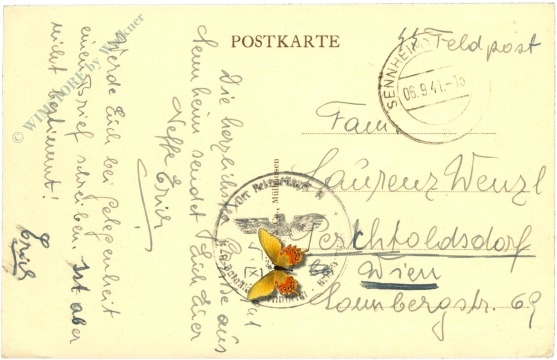 POSTKARTE
SS Feldpost
SENNHEIM
06.9.41.-15
Fam.
Laurenz Wenzl
Perchtoldsdorf
bei Wien
Sonnbergstr. 69
Die herzlichsten Grüße aus
Sennheim sendet Euch Euer
Neffe Erich
Werde Euch bei Gelegenheit
einen Brief schreiben. Ist aber
nicht bestimmt!
Erich
Mülhausen
© WINSTORE by Winkner